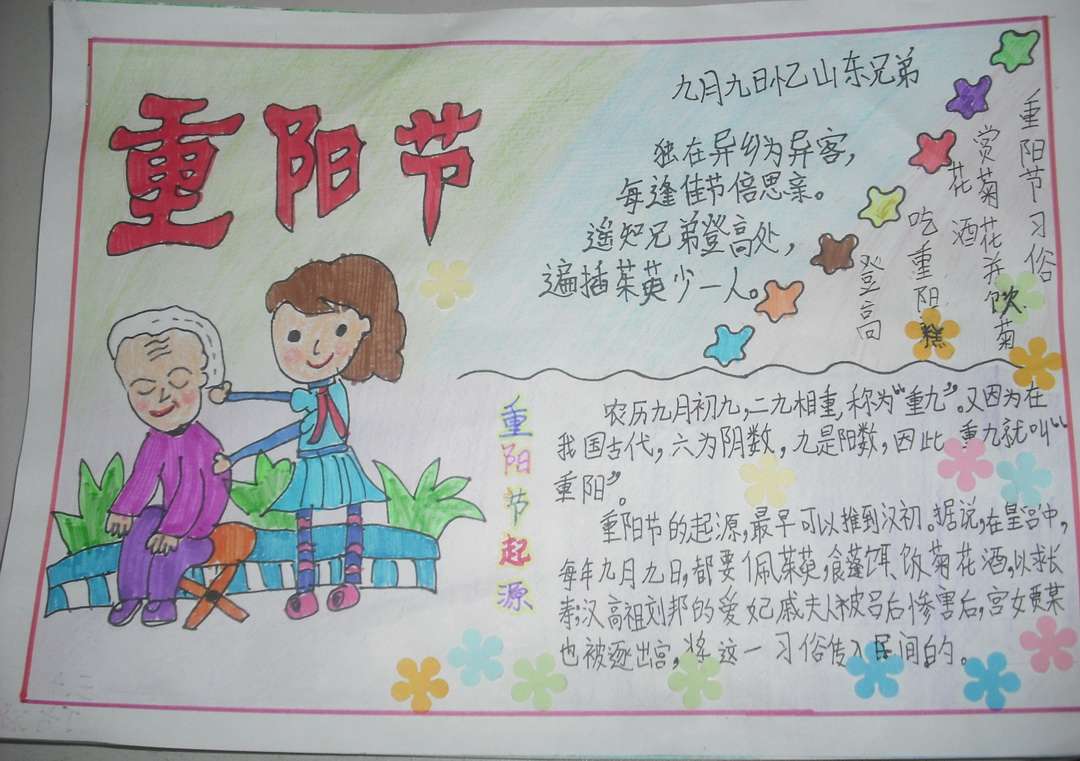 重阳节
九月九日忆山东兄弟
独在异乡为异客，
每逢佳节倍思亲。
遥知兄弟登高处，
遍插茱萸少一人。
重阳节习俗
赏菊花并饮菊
花酒
吃重阳糕
登高
重阳节起源
农历九月初九，二九相重，称为“重九”。又因为在
我国古代，六为阴数，九是阳数，因此，重九就叫“
重阳”。
重阳节的起源，最早可以推到汉初。据说，在皇宫中，
每年九月九日，都要佩茱萸，食蓬饵、饮菊花酒，以求长
寿；汉高祖刘邦的爱妃戚夫人被吕后惨害后，宫女贾某
也被逐出宫，将这一习俗传入民间的。